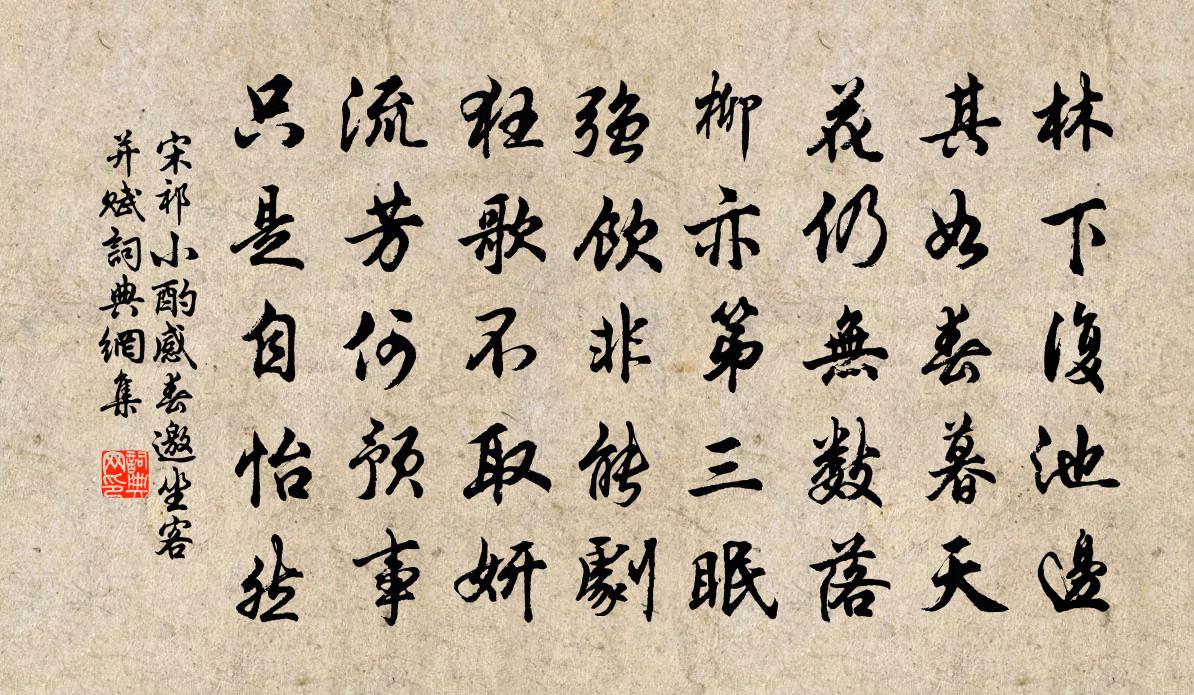 林下復池邊
其如春暮天
花仍無數落
柳亦第三眠
強飲非能劇
狂歌不取妍
流芳何預事
只是自怡然
宋祁小酌感春邀坐客
并賦詞典網集
詞典
网印